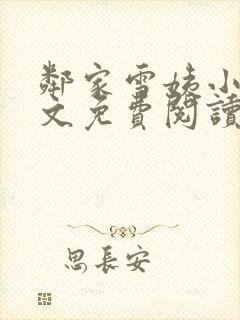 鄰家雪姨小
文免費閱讀
思長安